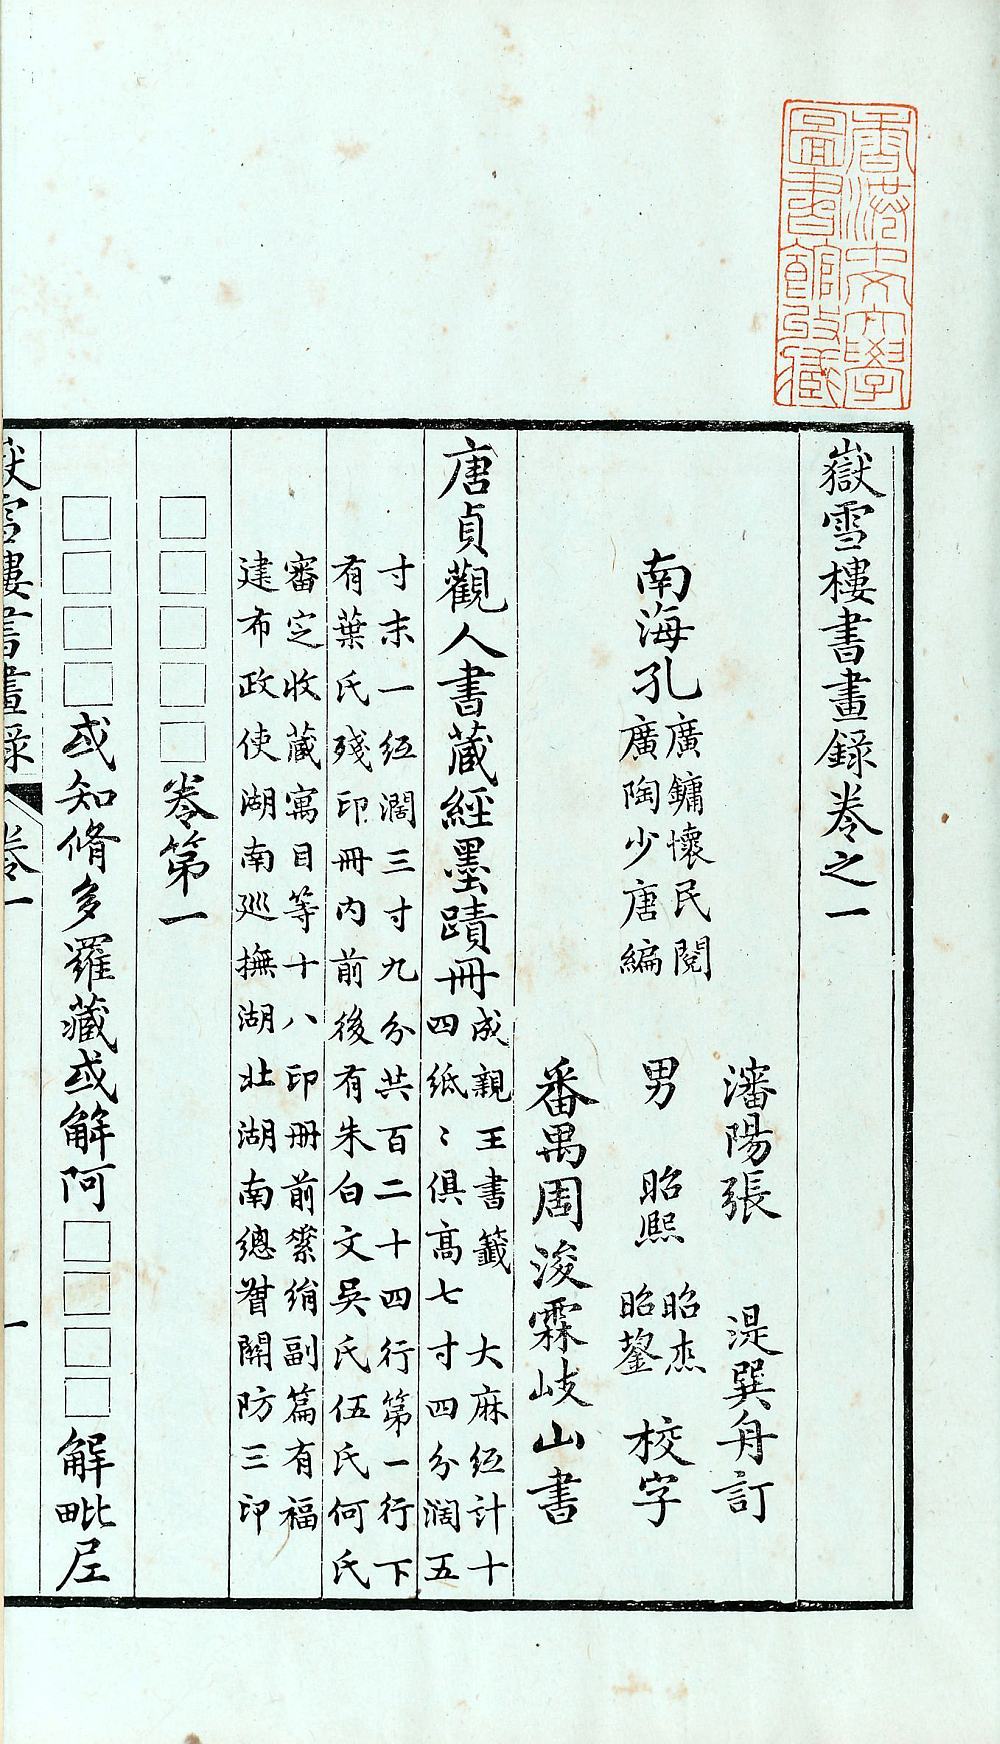 香港中文大學
圖書館收藏
嶽雪樓書畫錄卷之一
瀋陽張 湜巽舟訂
南海孔
廣鏞懷民閱
廣陶少唐編
男 昭熙
昭杰
昭鋆
校字
番禺周浚霖歧山書
唐貞觀人書藏經墨蹟冊
成親王書籤 大麻紙計十
四紙〻俱高七寸四分濶五
寸末一紙濶三寸九分共百二十四行第一行下
有葉氏殘印冊內前後有朱白文吳氏伍氏何氏
審定收藏寓目等十八印冊前綮絹副篇有福
建布政使湖南巡撫湖北湖南總督關防三印
□□□□□卷第一
□□□□或知脩多羅藏或解阿□□□□解毗𡰱
嶽雪樓書畫錄 卷一 一